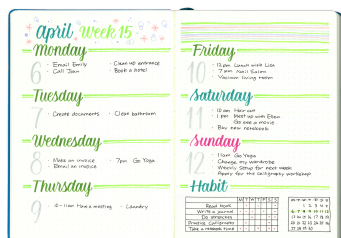 April, Week 15
Monday
6
· Email Emily
· Call Jean
· Clean up entrance
Book a hotel
Tuesday
7
· Create documents
· Clean bathroom
Wednesday
8
· Make an invoice
· Email an invoice
· 7pm Go Yoga
Thursday
9
· 9-11am Have a meeting
· Laundry
Friday
10
· 12pm Lunch with Lisa
· 7pm Nail Salon
· Vacuum living room
Saturday
11
· 10am Hair cut
· 1pm Meet up with Ellen
Go see a movie
· Buy new notebook
Sunday
12
· 11am Go Yoga
· Change my wardrobe
Weekly setup for next week
Apply for the calligraphy workshop
Habit
M T W T F S S
Read book
Write a journal
Do stretches
Practice Calligraphy
Take a restock time